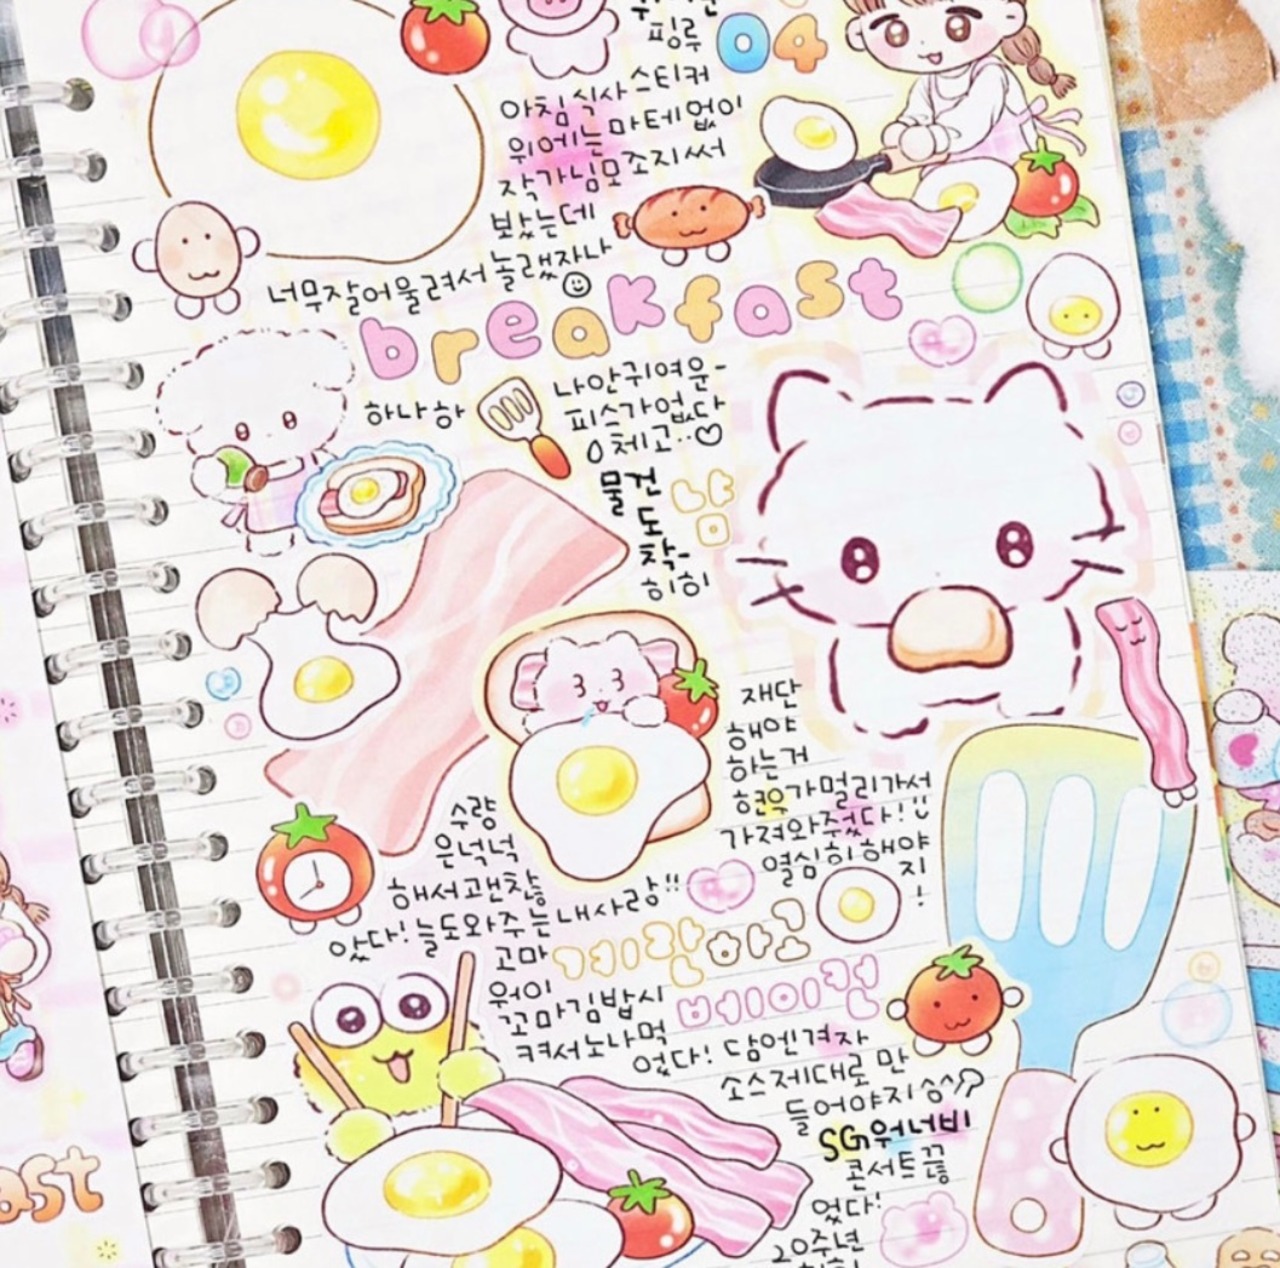 핑루
04
아침식사스티커
위에는마테없이
작가님모조지써
보났는데
너무잘어울려서놀랬자나
breakfast
하나하
나안귀여운-
피스가없단
ㅇ체고..♡
물건
도
착-
히히
냠
재단
해야
하는거
현우가멀리가서
가져와줬다!
열심히해야
지
!
수량
은넉넉
해서괜찮
았다!늘도와주는내사랑!!
꼬마 계란하고
워이
꼬마김밥시 베이컨
켜서노나먹
었다! 담엔겨자
소스제대로만
들어야지
SG워너비
콘서트끊
었다!
20주년
ast